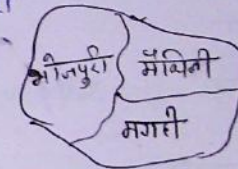 भोजपुरी
मैथिली
मगही